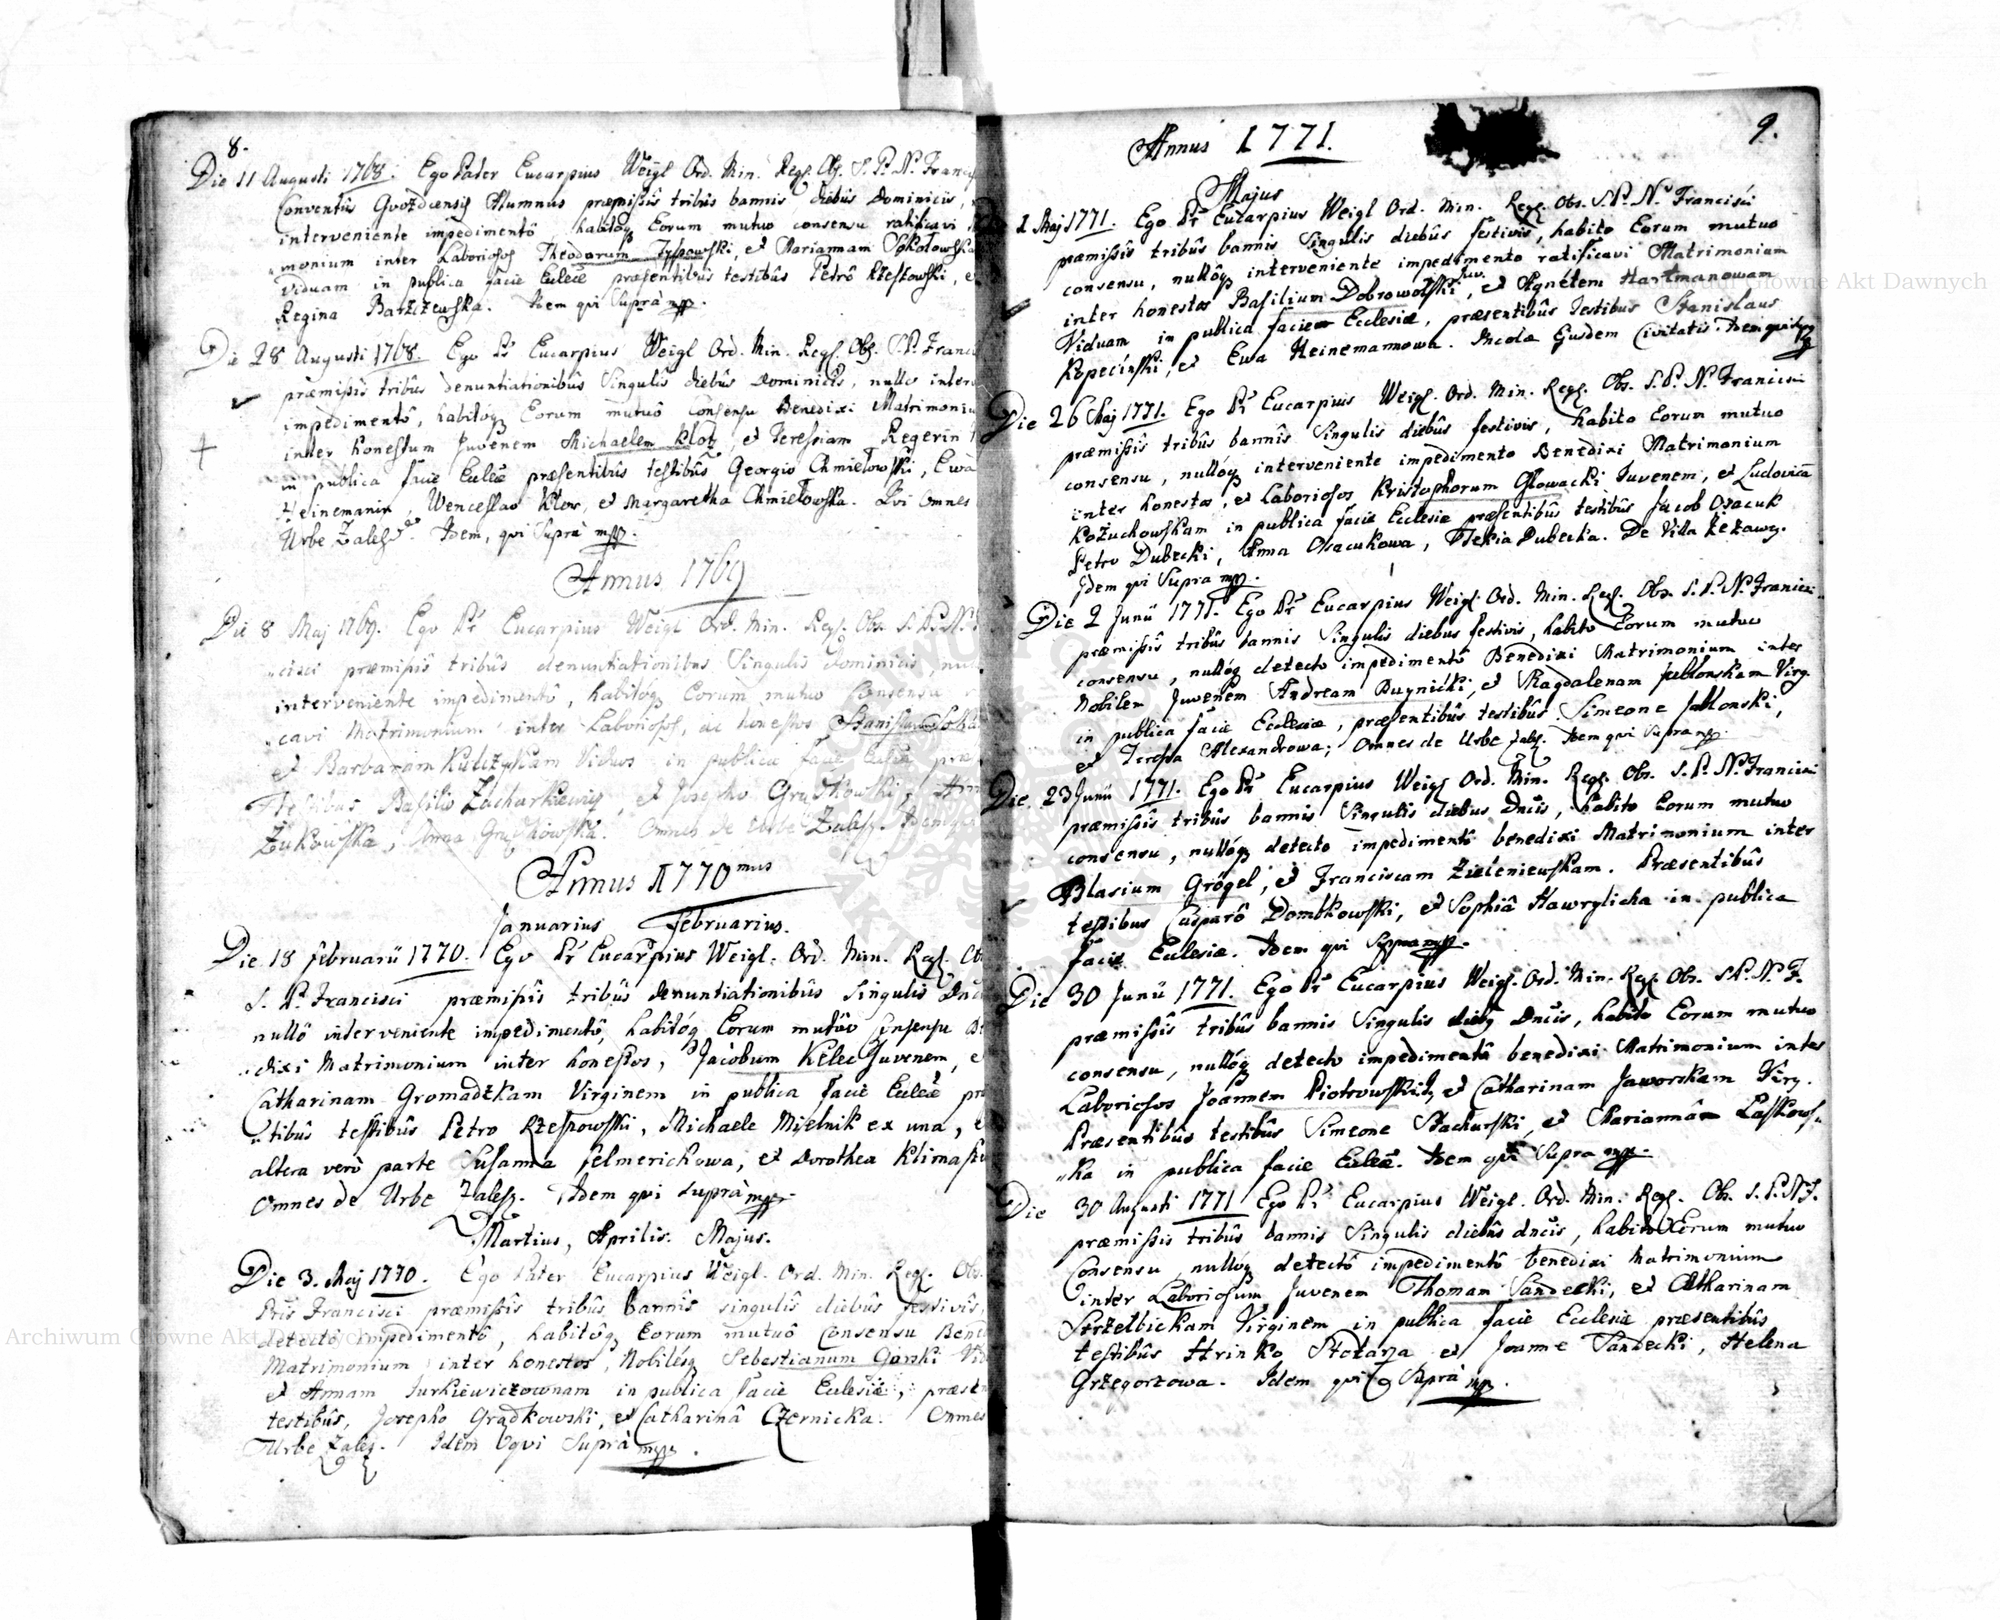 8.
Die 11 Augusti 1768. Ego Pater Eucarpius Weigl Ord. Min. Regl. Obs. S. P. N. Franc
Conventûs Gvozdcensis Alumnus præmissis tribûs bannis diebûs Dominicis,
interveniente impedimentô, habitóq Eorum mutuo consensu ratificavi
monium inter Laboriosos Theodorum, et Mariannam Sokołowska
Viduam in publica facie Ecclæ præsentibûs testibûs Petrô Rzeszowski, e
Regina Barszczewska. Idem qui Suprà mpp.
Die 28 Augusti 1768. Ego Pr Eucarpius Weigl Ord. Min. Regl. Obs. S. P. Franci
præmissis tribûs denuntiationibûs Singulis diebûs Dominicis, nullo inter
impedimentô, habitóq Eorum mutuô Consensu Benedixi Matrimoniu
inter honestum Juvenem Michaelem Klotz et Teressiam Regerin
in publica facie Ecclæ præsentibûs testibûs Georgio Chmielowski, Ewa
Heinemanin, Wenceslao Klos, et Margaretha Chmielowska. Qvi Omnes
Urbe Zalesz. Idem, qvi Suprà mpp.
Annus 1769
Die 8 Maj 1769. Ego Pr Eucarpius Weigl Ord. Min. Regl. Obs. S. P. N.
cisci præmissis tribûs denuntiationibus Singulis Dominicis, nul
interveniente impedimentô, habitóq Eorum mutuo Consensu
cavi Matrimonium inter Laboriosos, ac honestos Stanislaum
et Barbaram Viduos in publica facie Ecclæ præ
testibus Basilio Zacharkiewicz, et Josepho Grądkowski,
Żukowska, Anna Grądkowska. Omnes de Urbe Zalesz. Idem qvi
Annus 1770mus
Januarius Februarius.
Die 18 februarii 1770. Ego Pr Eucarpius Weigl. Ord. Min. Regl. Ob
S. P. Francisci præmissis tribûs denuntiationibûs Singulis Dnci
nullô interveniente impedimentô, habitóq Eorum mutûo Consensu B
dixi Matrimonium inter honestos, Jacobum Kelec Juvenem, e
Catharinam Gromadzkam Virginem in publica facie Ecclæ præ
ntibûs testibûs Petro Rzeszowski, Michaele Mielnik ex una, e
altera verò parte Susanna Felmerichowa, et Dorothea
Omnes de Urbe Zalesz. Idem qvi suprà mpp.
Martius, Aprilis. Majus.
Die 3. Maj 1770. Ego Pater Eucarpius Weigl. Ord. Min. Regl. Obs.
Pris Francisci præmissis tribûs bannis singulis diebûs festivis,
detectô impedimentô, habitôq Eorum mutuô Consensu Bene
Matrimonium inter honestos, Nobilesq Sebastianum Garski Vid
et Annam Jurkiewiczownam in publica facie Ecclesiæ, præsen
testibûs, Josepho Grądkowski, et Catharinâ Czernicka. Omnes
Urbe Zalesz. Idem qvi Suprà mpp.
9.
Annus 1771.
Majus
Die 1 Maj 1771. Ego Pr Eucarpius Weigl Ord. Min. Regl. Obs. S. P. N. Francisci
præmissis tribûs bannis Singulis diebûs festivis, habito Eorum mutuo
consensu, nullóq interveniente impedimento ratificavi Matrimonium
inter honestos Basilium Dobrowolski Juv., et Agnetem Hartmanowam
Viduam in publica facie Ecclesiæ, præsentibûs Testibus Stanislaus
Kopeciński, et Ewa Heinemannowa. Incolæ Ejusdem Civitatis. Idem qui supra
Die 26 Maj 1771. Ego Pr Eucarpius Weigl. Ord. Min. Regl. Obs. S. P. N. Francisci
præmissis tribûs bannis Singulis diebûs festivis, habito Eorum mutuo
consensu, nullóq interveniente impedimento Benedixi Matrimonium
inter honestos, et Laboriosos Kristophorum Głowacki Juvenem, et Ludovicā
Kożuchowskam in publica facie Ecclesiæ præsentibûs testibûs Jacob Osacuk
Petro Dubecki, Anna Osacukowa, Tekia Dubecka. De Villa Żeżawy.
Idem qvi Supra mpp.
Die 2 Junii 1771. Ego Pr Eucarpius Weigl. Ord. Min. Regl. Obs. S. P. N. Francisci
præmissis tribûs bannis Singulis diebus festivis, habito Eorum mutuo
consensu, nullóq detecto impedimentô Benedixi Matrimonium inter
Nobilem Juvenem Andream Buynicki, et Magdalenam Jablonskam Virg.
in publica facie Ecclesiæ, præsentibûs testibûs Simeone Jablonski,
et Teressa Alexandrowa; Omnes de Urbe Zalesz. Idem qvi Supra mpp.
Die 23 Junii 1771. Ego Pr Eucarpius Weigl Ord. Min. Regl. Obs. S. P. N. Francisci
præmissis tribûs bannis Singulis diebus Dncis, habito Eorum mutuo
consensu, nullóq detecto impedimentô benedixi Matrimonium inter
Blasium Grögel, et Franciscam Zieleniewskam. Præsentibûs
testibus Casparô Dombkowski, et Sophiâ Hawrylicha in publica
facie Ecclesiæ. Idem qvi Supra mpp.
Die 30 Junii 1771. Ego Pr Eucarpius Weigl. Ord. Min. Regl. Obs. S. P. N. F.
præmissis tribûs bannis Singulis diebq Dncis, habito Eorum mutuo
consensu, nullóq detecto impedimentô benedixi Matrimonium inter
Laboriosos Joannem Piotrowski, et Catharinam Jaworskam Virg.
Præsentibûs testibûs Simeone Stachurski, et Mariannâ Laskows-
ka in publica facie Ecclæ. Idem qvi Supra mpp.
Die 30 Augusti 1771 Ego Pr Eucarpius Weigl. Ord. Min. Regl. Obs. S. P. N. F.
præmissis tribûs bannis Singulis diebûs dncis, habito Eorum mutuo
Consensu nullóq detectô impedimentô benedixi Matrimonium
inter Laboriosum Juvenem Thomam Sandecki, et Catharinam
Strzelbickam Virginem in publica facie Ecclesiæ præsentibûs
testibûs Hrinko Stolarz et Joanne Sandecki, Helena
Grzegorzowa. Idem qvi Suprà mpp.
Archiwum Główne Akt Dawnych
Archiwum Główne Akt Dawnych